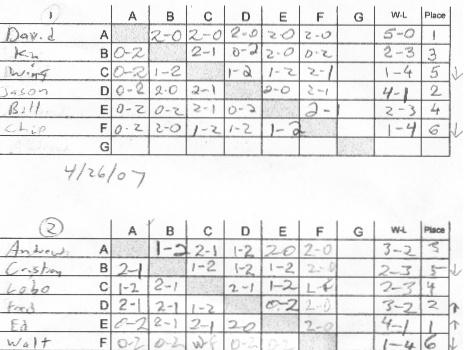 1 A B C D E F G W-L Place
David A 2-0 2-0 2-0 2-0 2-0 5-0 1
Ken B 0-2 2-1 0-2 2-0 0-2 2-3 3
C 0-2 1-2 1-2 1-2 2-1 1-4 5 ↓
Jason D 0-2 2-0 2-1 2-0 2-1 4-1 2
Bill E 0-2 0-2 2-1 0-2 2-1 2-3 4
Chip F 0-2 2-0 1-2 1-2 1-2 1-4 6 ↓
G
4/26/07
2 A B C D E F G W-L Place
Andrew A 1-2 2-1 1-2 2-0 2-0 3-2 3
B 2-1 1-2 1-2 1-2 2-0 2-3 5 ↓
Lobo C 1-2 2-1 2-1 1-2 2-3 4
Fred D 2-1 2-1 1-2 0-2 2-0 3-2 2 ↑
Ed E 0-2 2-1 2-1 2-0 2-0 4-1 1 ↑
Walt F 0-2 0-2 0-2 0-2 1-4 6 ↓